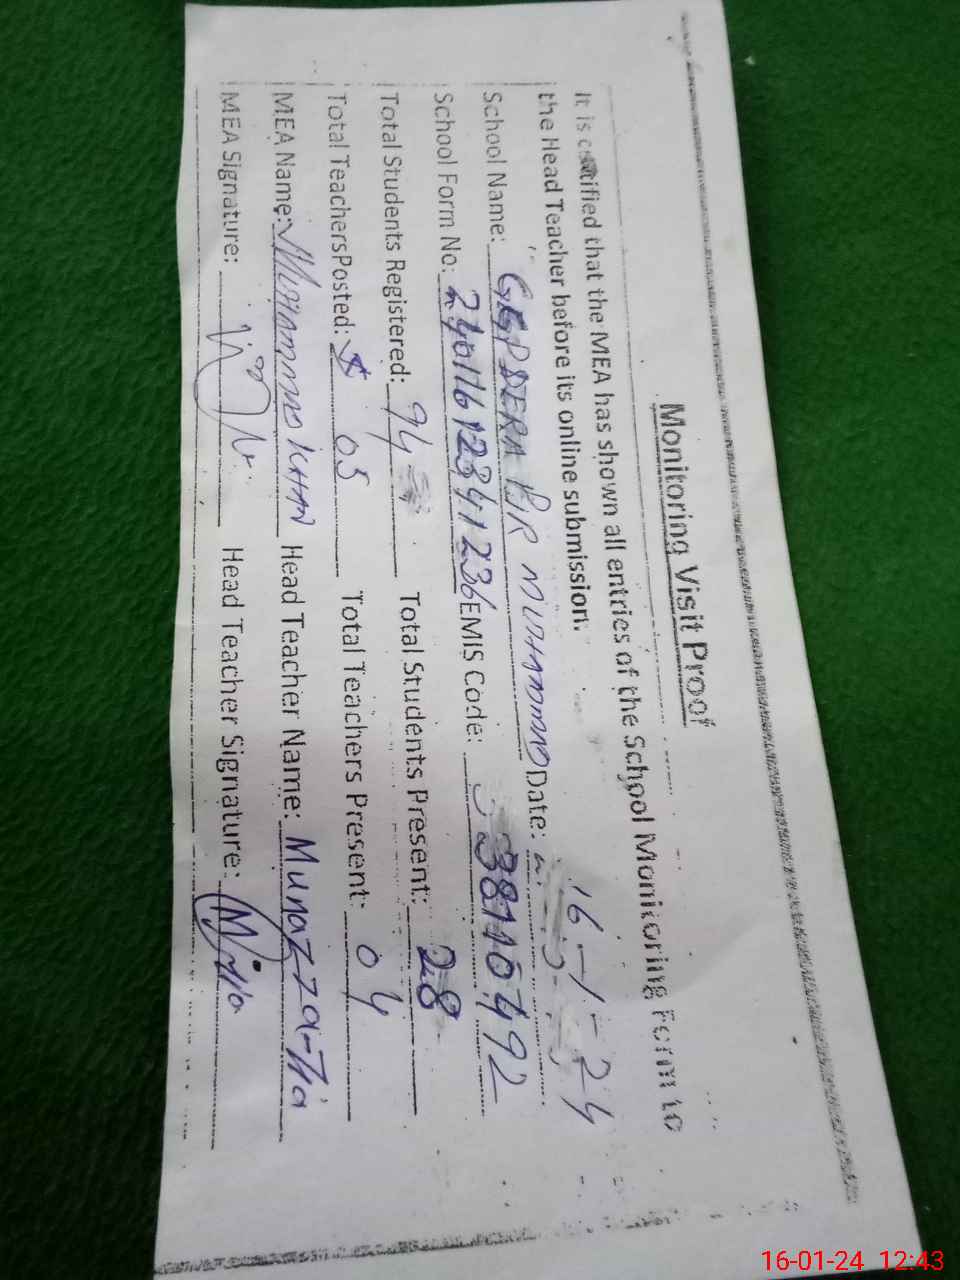 Monitoring Visit Proof
It is certified that the MEA has shown all entries of the School Monitoring Form to
the Head Teacher before its online submission.
School Name: GGPS DERA PIR MUHAMMAD Date: 16-1-24
School Form No: 24011612341236 EMIS Code: 38110492
Total Students Registered: 94 Total Students Present: 28
Total TeachersPosted: 05 Total Teachers Present: 04
MEA Name: MUHAMMAD KHAN Head Teacher Name: Munazza
MEA Signature: Head Teacher Signature:
16-01-24 12:43